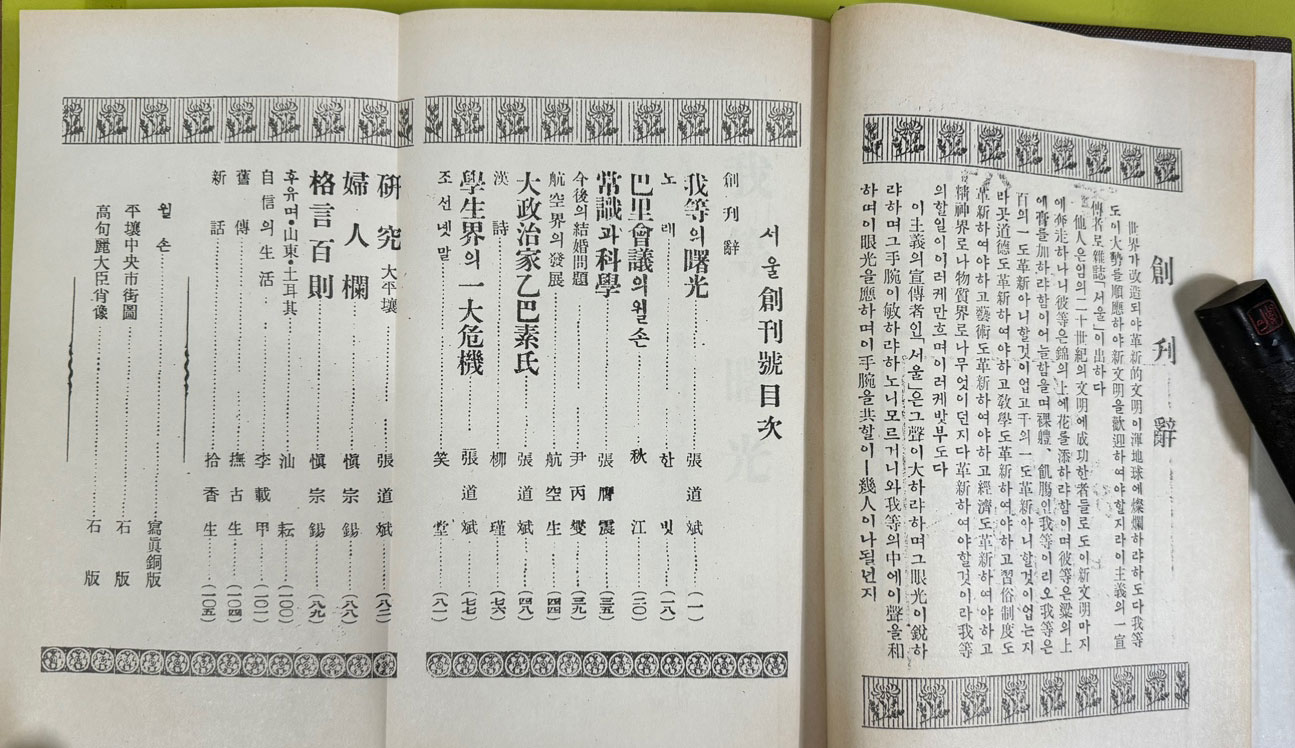 創刊辭
世界가改造되야革新的文明이渾地球에燦爛하랴하도다我等
도이大勢를順應하야新文明을歡迎하여야할지라이主義의一宣
傳者로雜誌「서울」이出하다
他人은임의二十世紀의文明에成功한者들로도이新文明까지
에奔走하나니彼等은錦의上에花를添하랴함이며彼等은粱의上
에膏를加하랴함이어늘함을며裸軆、飢膓인我等이리오我等은
百의一도革新아니할것이업고千의一도革新아니할것이업는지
라곳道德도革新하여야하고敎學도革新하여야하고習俗制度도
革新하여야하고藝術도革新하여야하고經濟도革新하여야하고
精神界로나物質界로나무엇이던지다革新하여야할것이라我等
의할일이이러케만흐며이러케밧부도다
이主義의宣傳者인「서울」은그聲이大하랴하며그眼光이銳하
랴하며그手腕이敏하랴하노니모르거니와我等의中에이聲을和
하며이眼光을應하며이手腕을共할이ㅣ幾人이나될넌지
서울創刊號目次
創刊辭
我等의曙光 張道斌 (一)
노래 한빗 (一八)
巴里會議의윌손 秋江 (二〇)
常識과科學 張膺震 (三五)
今後의結婚問題 尹丙燮 (三九)
航空界의發展 航空生 (四四)
大政治家乙巴素氏 張道斌 (四八)
漢詩 柳瑾 (七六)
學生界의一大危機 張道斌 (七七)
조선넷말 笑堂 (八一)
硏究 大平壤 張道斌 (八二)
婦人欄 愼宗錫 (八八)
格言百則 愼宗錫 (八九)
후유며•山東•土耳其 汕耘 (一〇〇)
自信의生活 李載甲 (一〇一)
舊傳 撫古生 (一〇四)
新話 拾香生 (一〇五)
윌손 寫眞銅版
平壤中央市街圖 石版
高句麗大臣肖像 石版